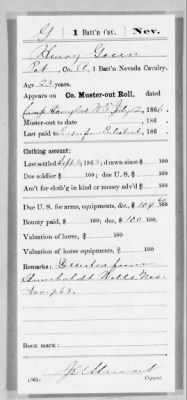 G | 1 Batt'n Cav. | Nev.
Henry Green
Pvt, Co. A, 1 Batt'n Nevada Cavalry.
Age 23 years.
Appears on Co. Muster-out Roll, dated
Camp Douglas U.T. July 12, 1866.
Muster-out to date 186 .
Last paid to 186 .
Clothing account:
Last settled Sept 1, 1863; drawn since $ 100
Due soldier $ 100; due U. S. $ 100
Am't for cloth'g in kind or money adv'd $ 100
Due U. S. for arms, equipments, &c., $ 104
Bounty paid, $ 100; due $ 100. 100
Valuation of horse, $ 100
Valuation of horse equipments, $ 100
Remarks: Deserted from
Humboldt Wells, Nev.
Nov. 63.
Book mark:
(361) Copyist.